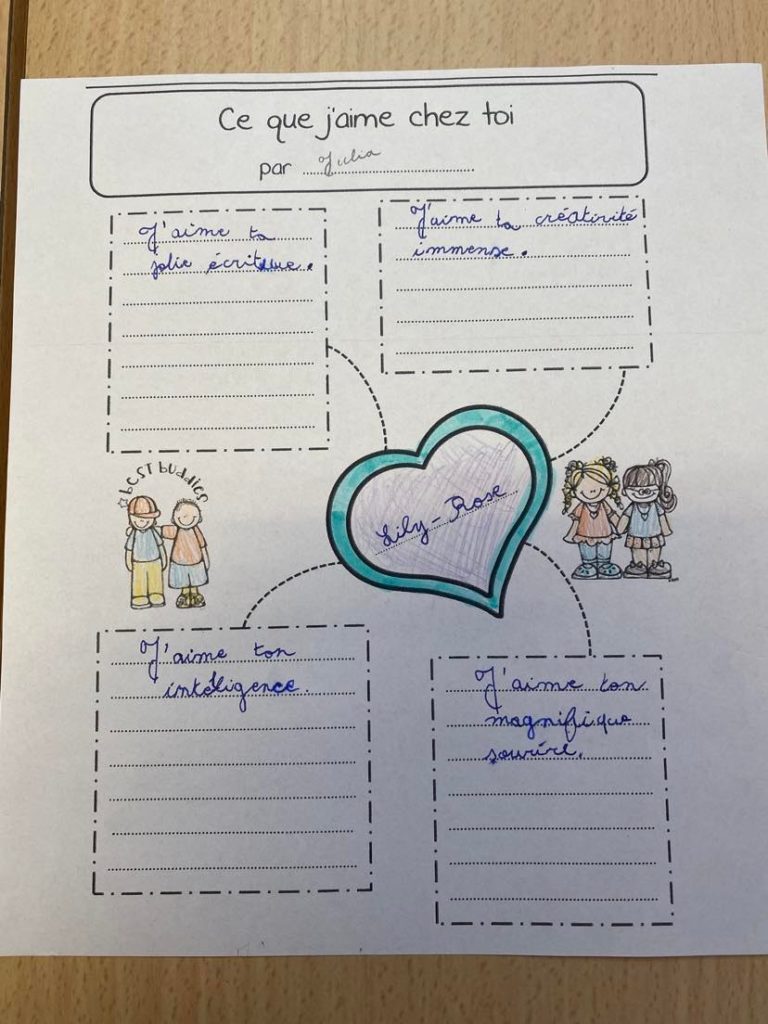 Ce que j'aime chez toi
par Julia
J'aime ta
jolie écriture.
J'aime ta créativité
immense.
best buddies
Lily-Rose
J'aime ton
intéligence.
J'aime ton
magnifique
sourire.